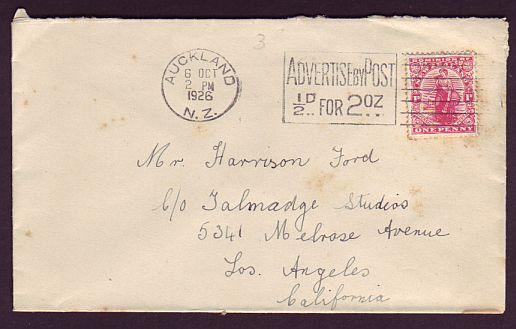 3
AUCKLAND
6 OCT
2 PM
1926
N.Z.
ADVERTISE BY POST
½D FOR 2 OZ
DOMINION OF
ONE PENNY
Mr Harrison Ford
C/o Talmadge Studios
5341 Melrose Avenue
Los. Angeles
California